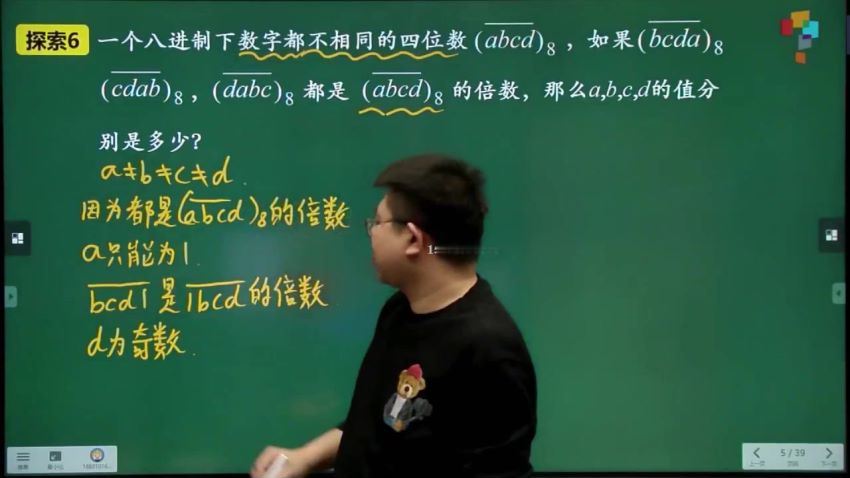 探索6 一个八进制下数字都不相同的四位数 (abcd)₈ ，如果(bcda)₈
(cdab)₈ ，(dabc)₈ 都是 (abcd)₈ 的倍数，那么a,b,c,d的值分
别是多少？
a≠b≠c≠d.
因为都是(abcd)₈的倍数
a只能为1.
bcd1 是 1bcd 的倍数.
d为奇数.
5 / 39
上一页
下一页